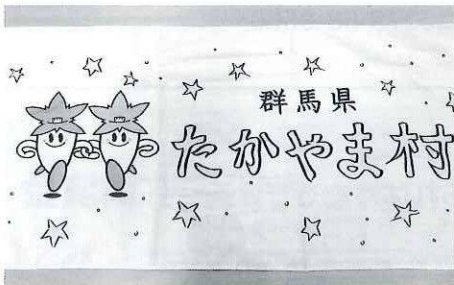 群馬県
たかやま村